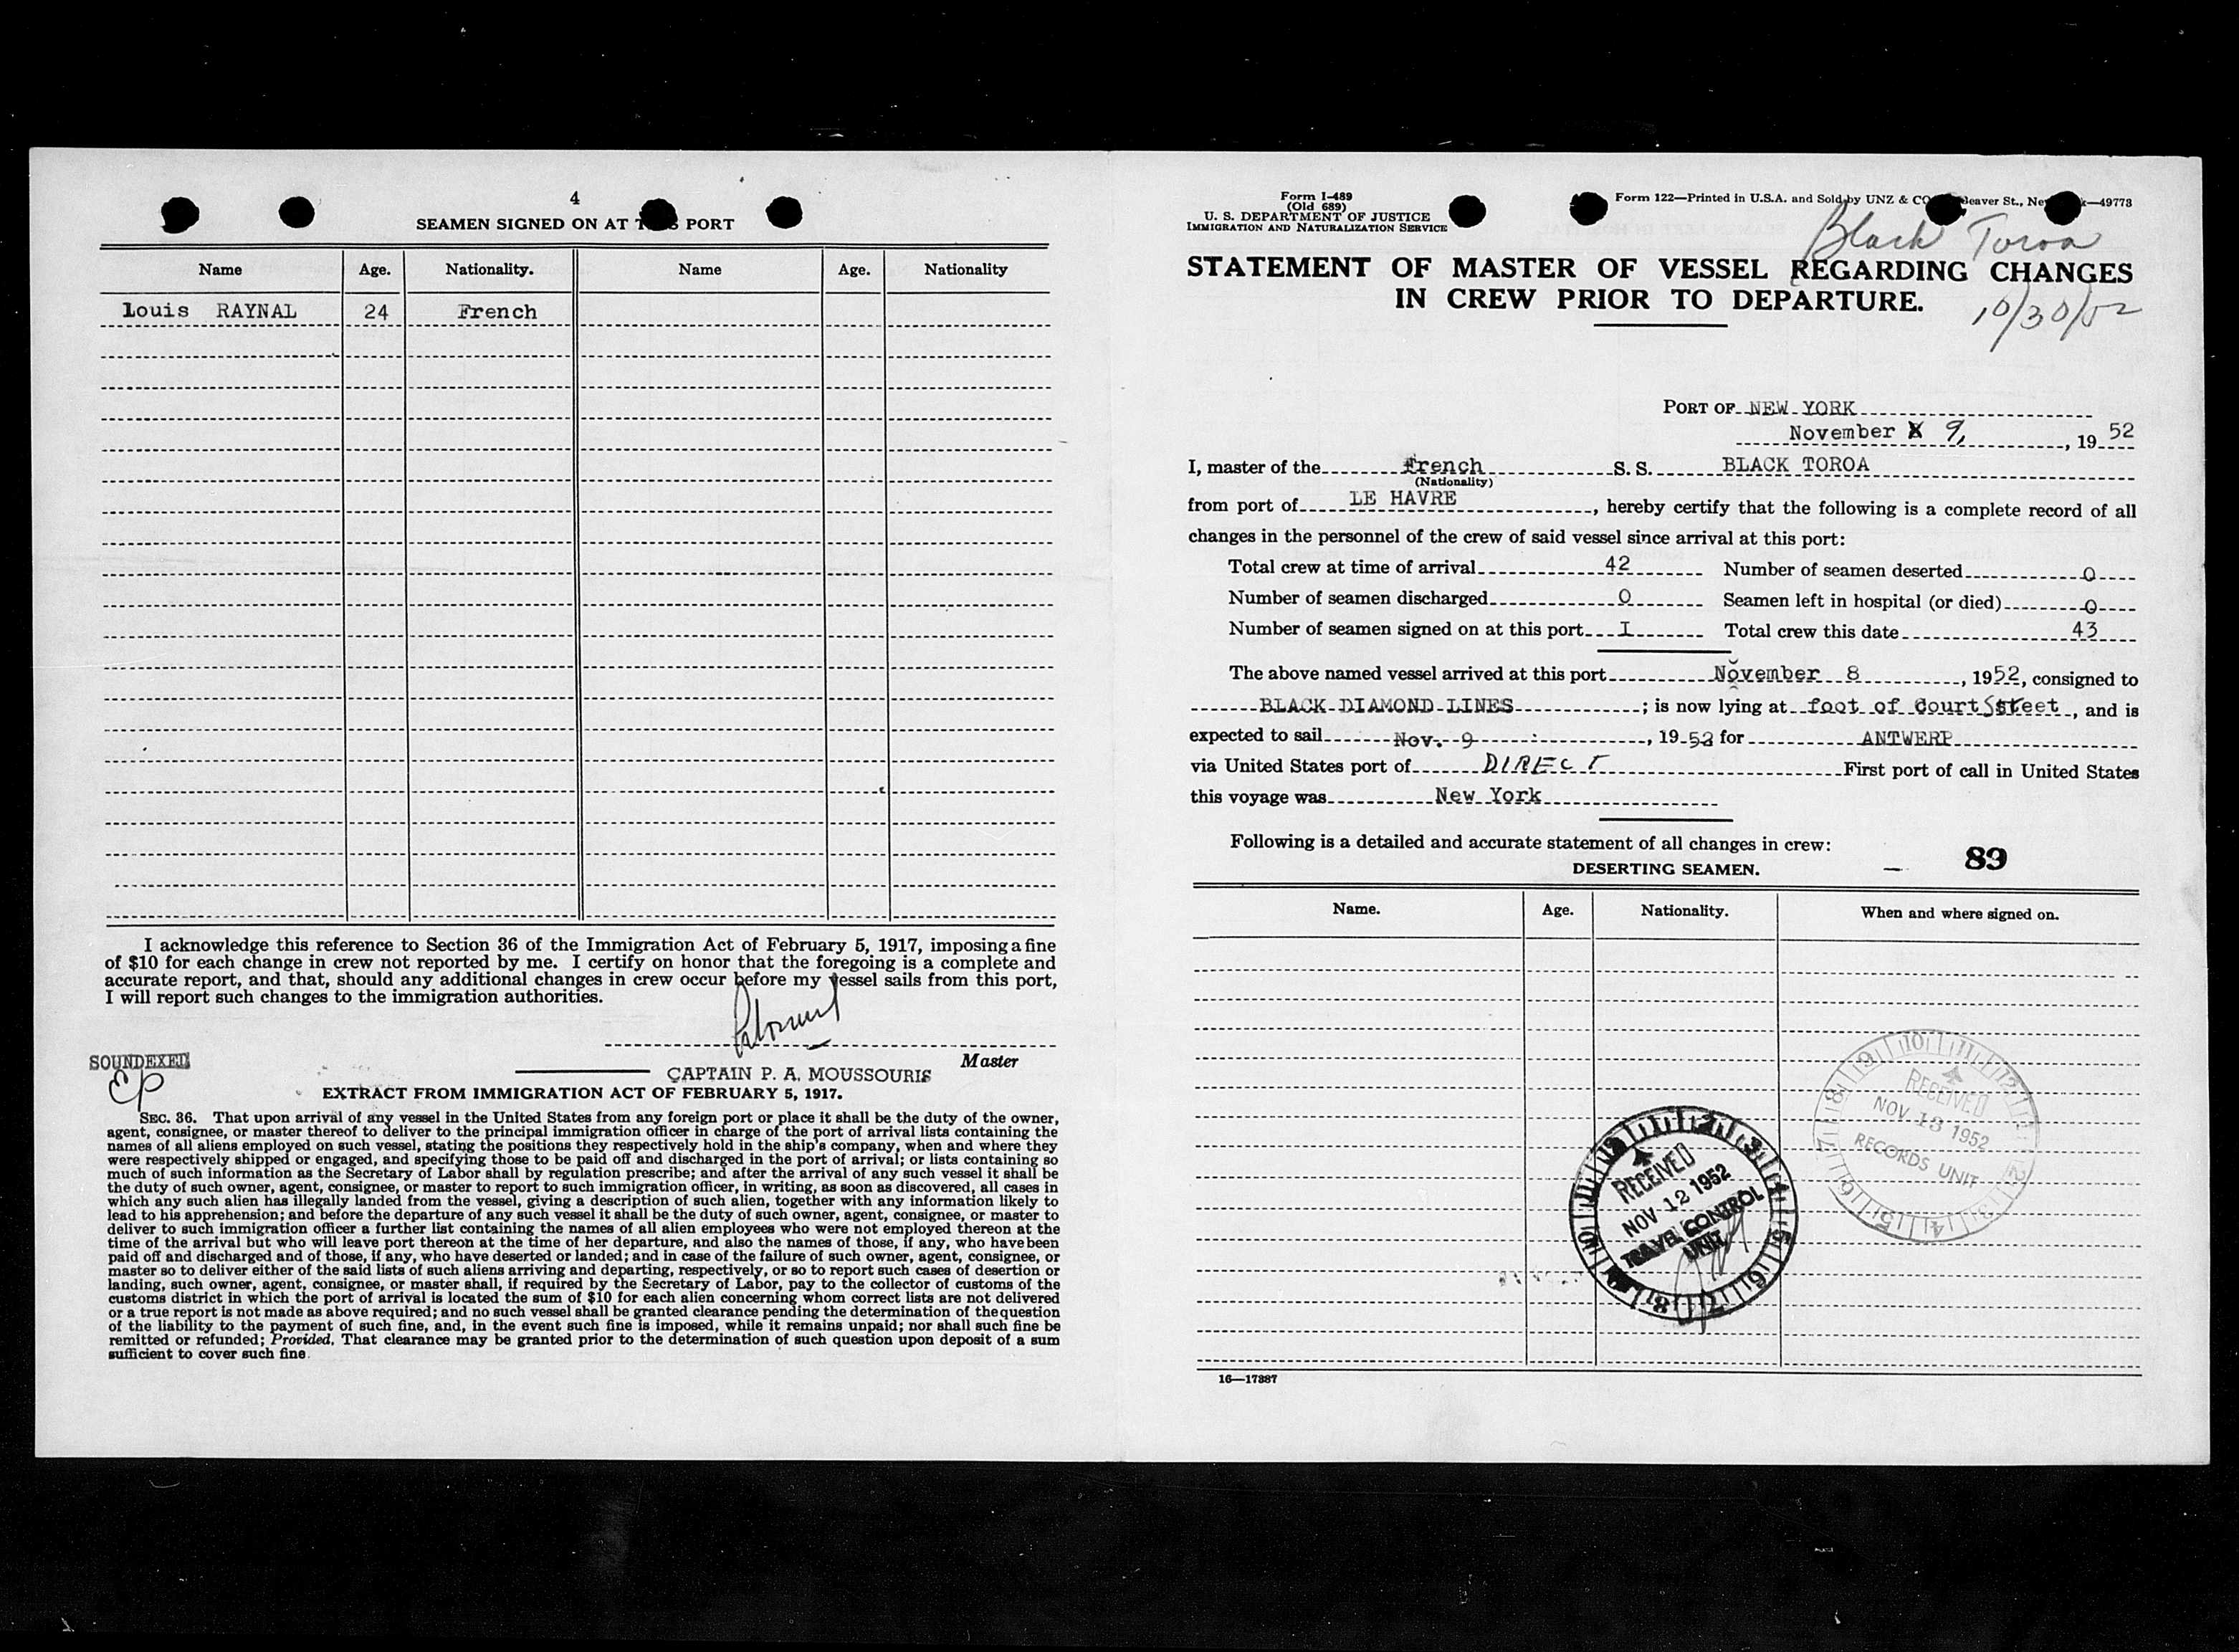 4
SEAMEN SIGNED ON AT PORT
Name Age. Nationality. Name Age. Nationality
Louis RAYNAL 24 French
I acknowledge this reference to Section 36 of the Immigration Act of February 5, 1917, imposing a fine
of $10 for each change in crew not reported by me. I certify on honor that the foregoing is a complete and
accurate report, and that, should any additional changes in crew occur before my vessel sails from this port,
I will report such changes to the immigration authorities.
SOUNDEXED
EP
Master
CAPTAIN P. A. MOUSSOURIS
EXTRACT FROM IMMIGRATION ACT OF FEBRUARY 5, 1917.
SEC. 36. That upon arrival of any vessel in the United States from any foreign port or place it shall be the duty of the owner,
agent, consignee, or master thereof to deliver to the principal immigration officer in charge of the port of arrival lists containing the
names of all aliens employed on such vessel, stating the positions they respectively hold in the ship's company, when and where they
were respectively shipped or engaged, and specifying those to be paid off and discharged in the port of arrival; or lists containing so
much of such information as the Secretary of Labor shall by regulation prescribe; and after the arrival of any such vessel it shall be
the duty of such owner, agent, consignee, or master to report to such immigration officer, in writing, as soon as discovered, all cases in
which any such alien has illegally landed from the vessel, giving a description of such alien, together with any information likely to
lead to his apprehension; and before the departure of any such vessel it shall be the duty of such owner, agent, consignee, or master to
deliver to such immigration officer a further list containing the names of all alien employees who were not employed thereon at the
time of the arrival but who will leave port thereon at the time of her departure, and also the names of those, if any, who have been
paid off and discharged and of those, if any, who have deserted or landed; and in case of the failure of such owner, agent, consignee, or
master so to deliver either of the said lists of such aliens arriving and departing, respectively, or so to report such cases of desertion or
landing, such owner, agent, consignee, or master shall, if required by the Secretary of Labor, pay to the collector of customs of the
customs district in which the port of arrival is located the sum of $10 for each alien concerning whom correct lists are not delivered
or a true report is not made as above required; and no such vessel shall be granted clearance pending the determination of the question
of the liability to the payment of such fine, and, in the event such fine is imposed, while it remains unpaid; nor shall such fine be
remitted or refunded; Provided, That clearance may be granted prior to the determination of such question upon deposit of a sum
sufficient to cover such fine.
Form I-489
(Old 689)
U. S. DEPARTMENT OF JUSTICE
IMMIGRATION AND NATURALIZATION SERVICE
Form 122—Printed in U.S.A. and Sold by UNZ & CO St., —49778
Black Toroa
STATEMENT OF MASTER OF VESSEL REGARDING CHANGES
IN CREW PRIOR TO DEPARTURE.
10/30/52
PORT OF NEW YORK
November 9, 1952
I, master of the French S. S. BLACK TOROA
(Nationality)
from port of LE HAVRE, hereby certify that the following is a complete record of all
changes in the personnel of the crew of said vessel since arrival at this port:
Total crew at time of arrival 42 Number of seamen deserted 0
Number of seamen discharged 0 Seamen left in hospital (or died) 0
Number of seamen signed on at this port I Total crew this date 43
The above named vessel arrived at this port November 8, 1952, consigned to
BLACK DIAMOND LINES; is now lying at foot of Court Street, and is
expected to sail Nov. 9, 1952 for ANTWERP
via United States port of DIRECT First port of call in United States
this voyage was New York
Following is a detailed and accurate statement of all changes in crew:
89
DESERTING SEAMEN.
Name. Age. Nationality. When and where signed on.
RECEIVED
NOV 13 1952
RECORDS UNIT
RECEIVED
NOV 12 1952
TRAVEL CONTROL
UNIT
16—17387